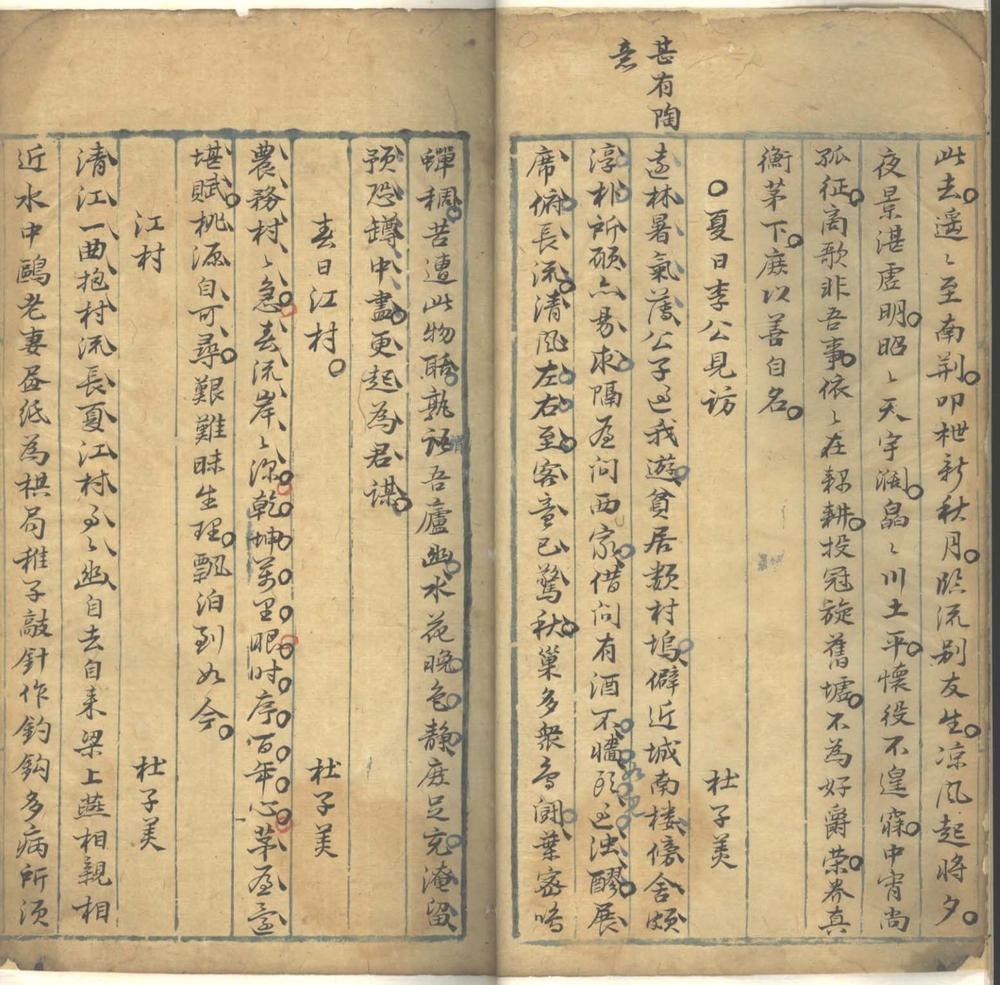 甚有陶
意
此去遥〻至南荆叩枻新秋月臨流别友生凉风起將夕
夜景湛虚明昭〻天宇濶皛〻川土平懷役不遑寐中宵尚
孤征商歌非吾事依〻在耦耕投冠旋舊墟不為好爵荣养真
衡茅下庶以善自名
夏日李公見访
杜子美
遠林暑氣薄公子过我遊貧居類村塢僻近城南楼傍舍頗
淳朴所願亦易求隔屋问西家借问有酒不墙头过浊醪展
席俯長流清风左右至客意已驚秋巢多衆鸟闘葉密鳴
蟬稠苦遭此物聒孰谓吾廬幽水花晚色静庶足充淹留
预恐罇中盡更起為君谋
春日江村
杜子美
農務村〻急春流岸〻深乾坤萬里眼时序百年心茅屋還
堪賦桃源自可尋艱難昧生理飄泊到如今
江村
杜子美
清江一曲抱村流長夏江村事〻幽自去自来梁上燕相親相
近水中鷗老妻画纸為棋局稚子敲針作釣鈎多病所须